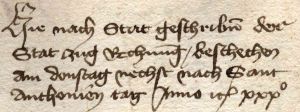 Hie nach Stat geschribn̄ der
Stat zug Rechnung / beschechen
am donstag nechst nach Sant
Anthonien tag Anno